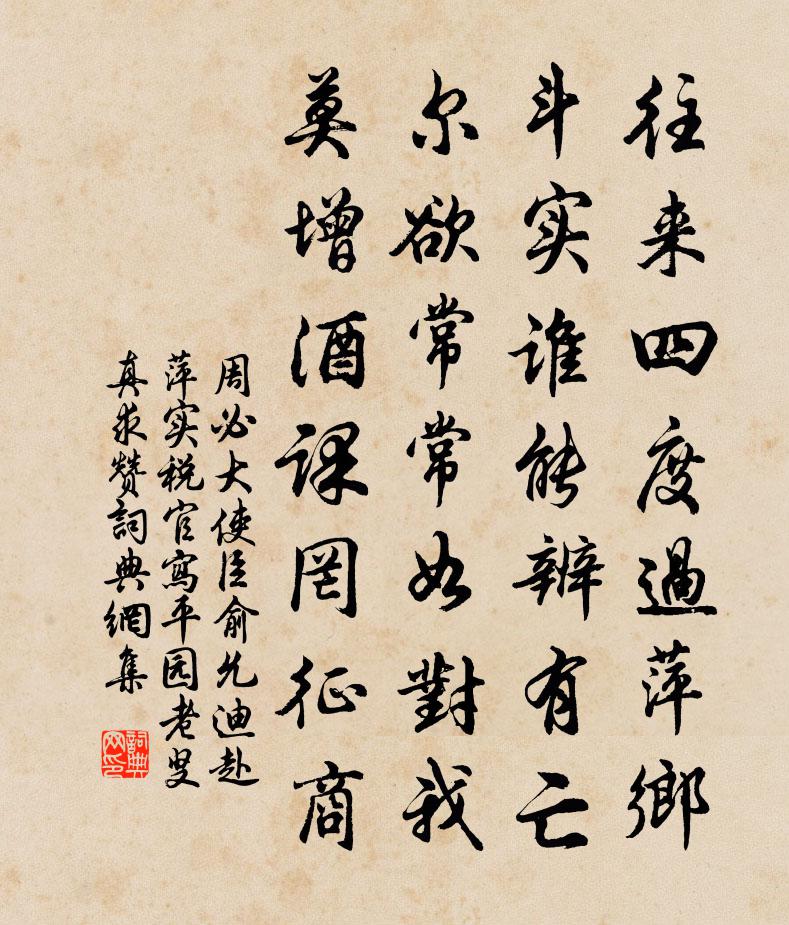 往来四度過萍鄉
斗实谁能辨有亡
尔欲常常如對我
莫增酒课罔征商
周必大使臣俞允迪赴
萍实税官寫平园老叟
真求赞詞典網集
詞典
网印